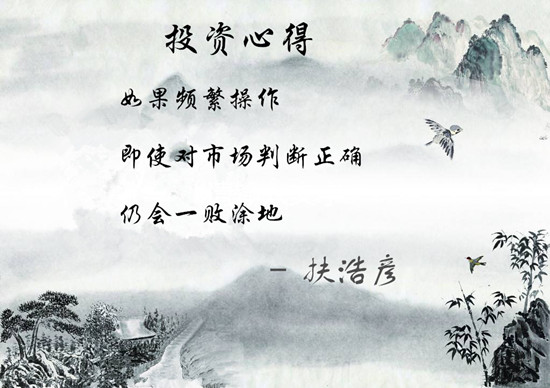 投资心得
如果频繁操作
即使对市场判断正确
仍会一败涂地
- 扶浩彦